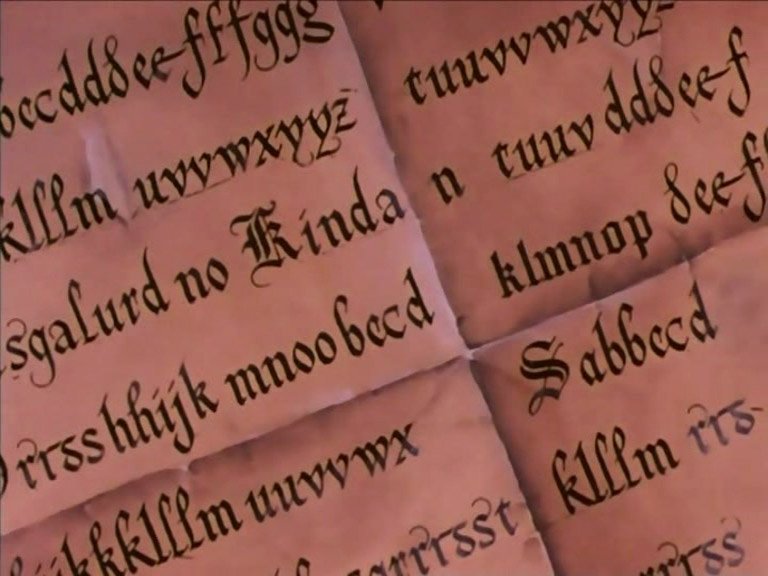 bccdddeefffggg
klllm uvvwxyyz
sgalurd no Kinda
rrssshhijk mnoobccd
ijkkklllm uuvvwx
qrrrssst
tuuvvwxyyz
n tuuv dddeef
klmnop deeff
Sabbccd
klllm rrs
rrss